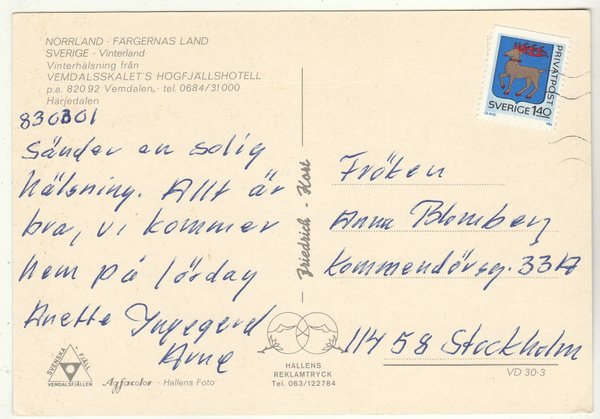 NORRLAND - FÄRGERNAS LAND
SVERIGE - Vinterland
Vinterhälsning från
VEMDALSSKALET'S HÖGFJÄLLSHOTELL
p.a. 820 92 Vemdalen, tel. 0684/31000
Härjedalen
830301
Sänder en solig
hälsning. Allt är
bra, vi kommer
hem på lördag
Anette Ingegerd
Arne
SVENSKA FJÄLL
VEMDALSFJÄLLEN
Agfacolor - Hallens Foto
Friedrich - Kort
HALLENS
REKLAMTRYCK
Tel. 063/122784
PRIVATPOST
SVERIGE 140
ÖLAND
Fröken
Anna Blomberg
Kommendörsg. 33A
114 58 Stockholm
VD 30-3